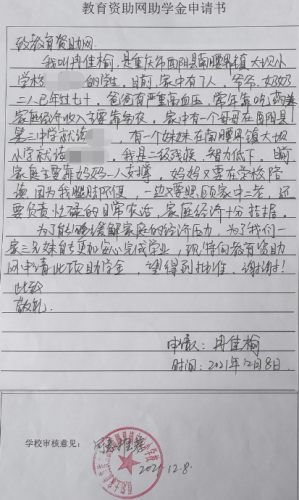 教育资助网助学金申请书
致教育资助网:
我叫冉佳榆,是重庆市酉阳县南腰界镇大坝小
学校 的学生,目前,家中有7人,爷爷,奶奶
二人已年过七十,爸爸有严重高血压,常年靠吃药
家庭经济收入主要靠务农,家中有一个 在酉阳县
第三中学就读 ,有一个妹妹在南腰界镇大坝
小学就读 ,我是二级残疾,智力低下,目前
家庭主要靠妈妈一人支撑,妈妈又要在学校陪
读,因为我腿脚不便,一边又要照顾家中二老,还
要负责 的日常农活,家庭经济十分拮据。
为了能够缓解家庭的经济压力,为了我们一
家三兄妹能更加安心完成学业,现特向教育资助
网申请此项助学金,望得到批准,谢谢!
此致
敬礼
申请人:冉佳榆
时间:2021年12月8日
学校审核意见:
同意推荐
2021.12.8.